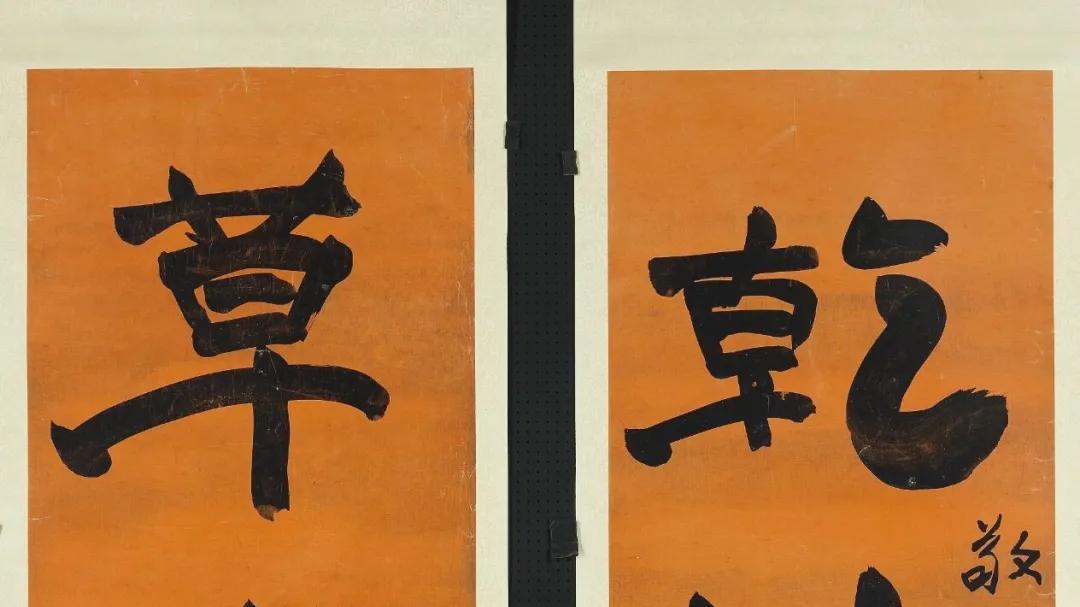 乾
敬
草